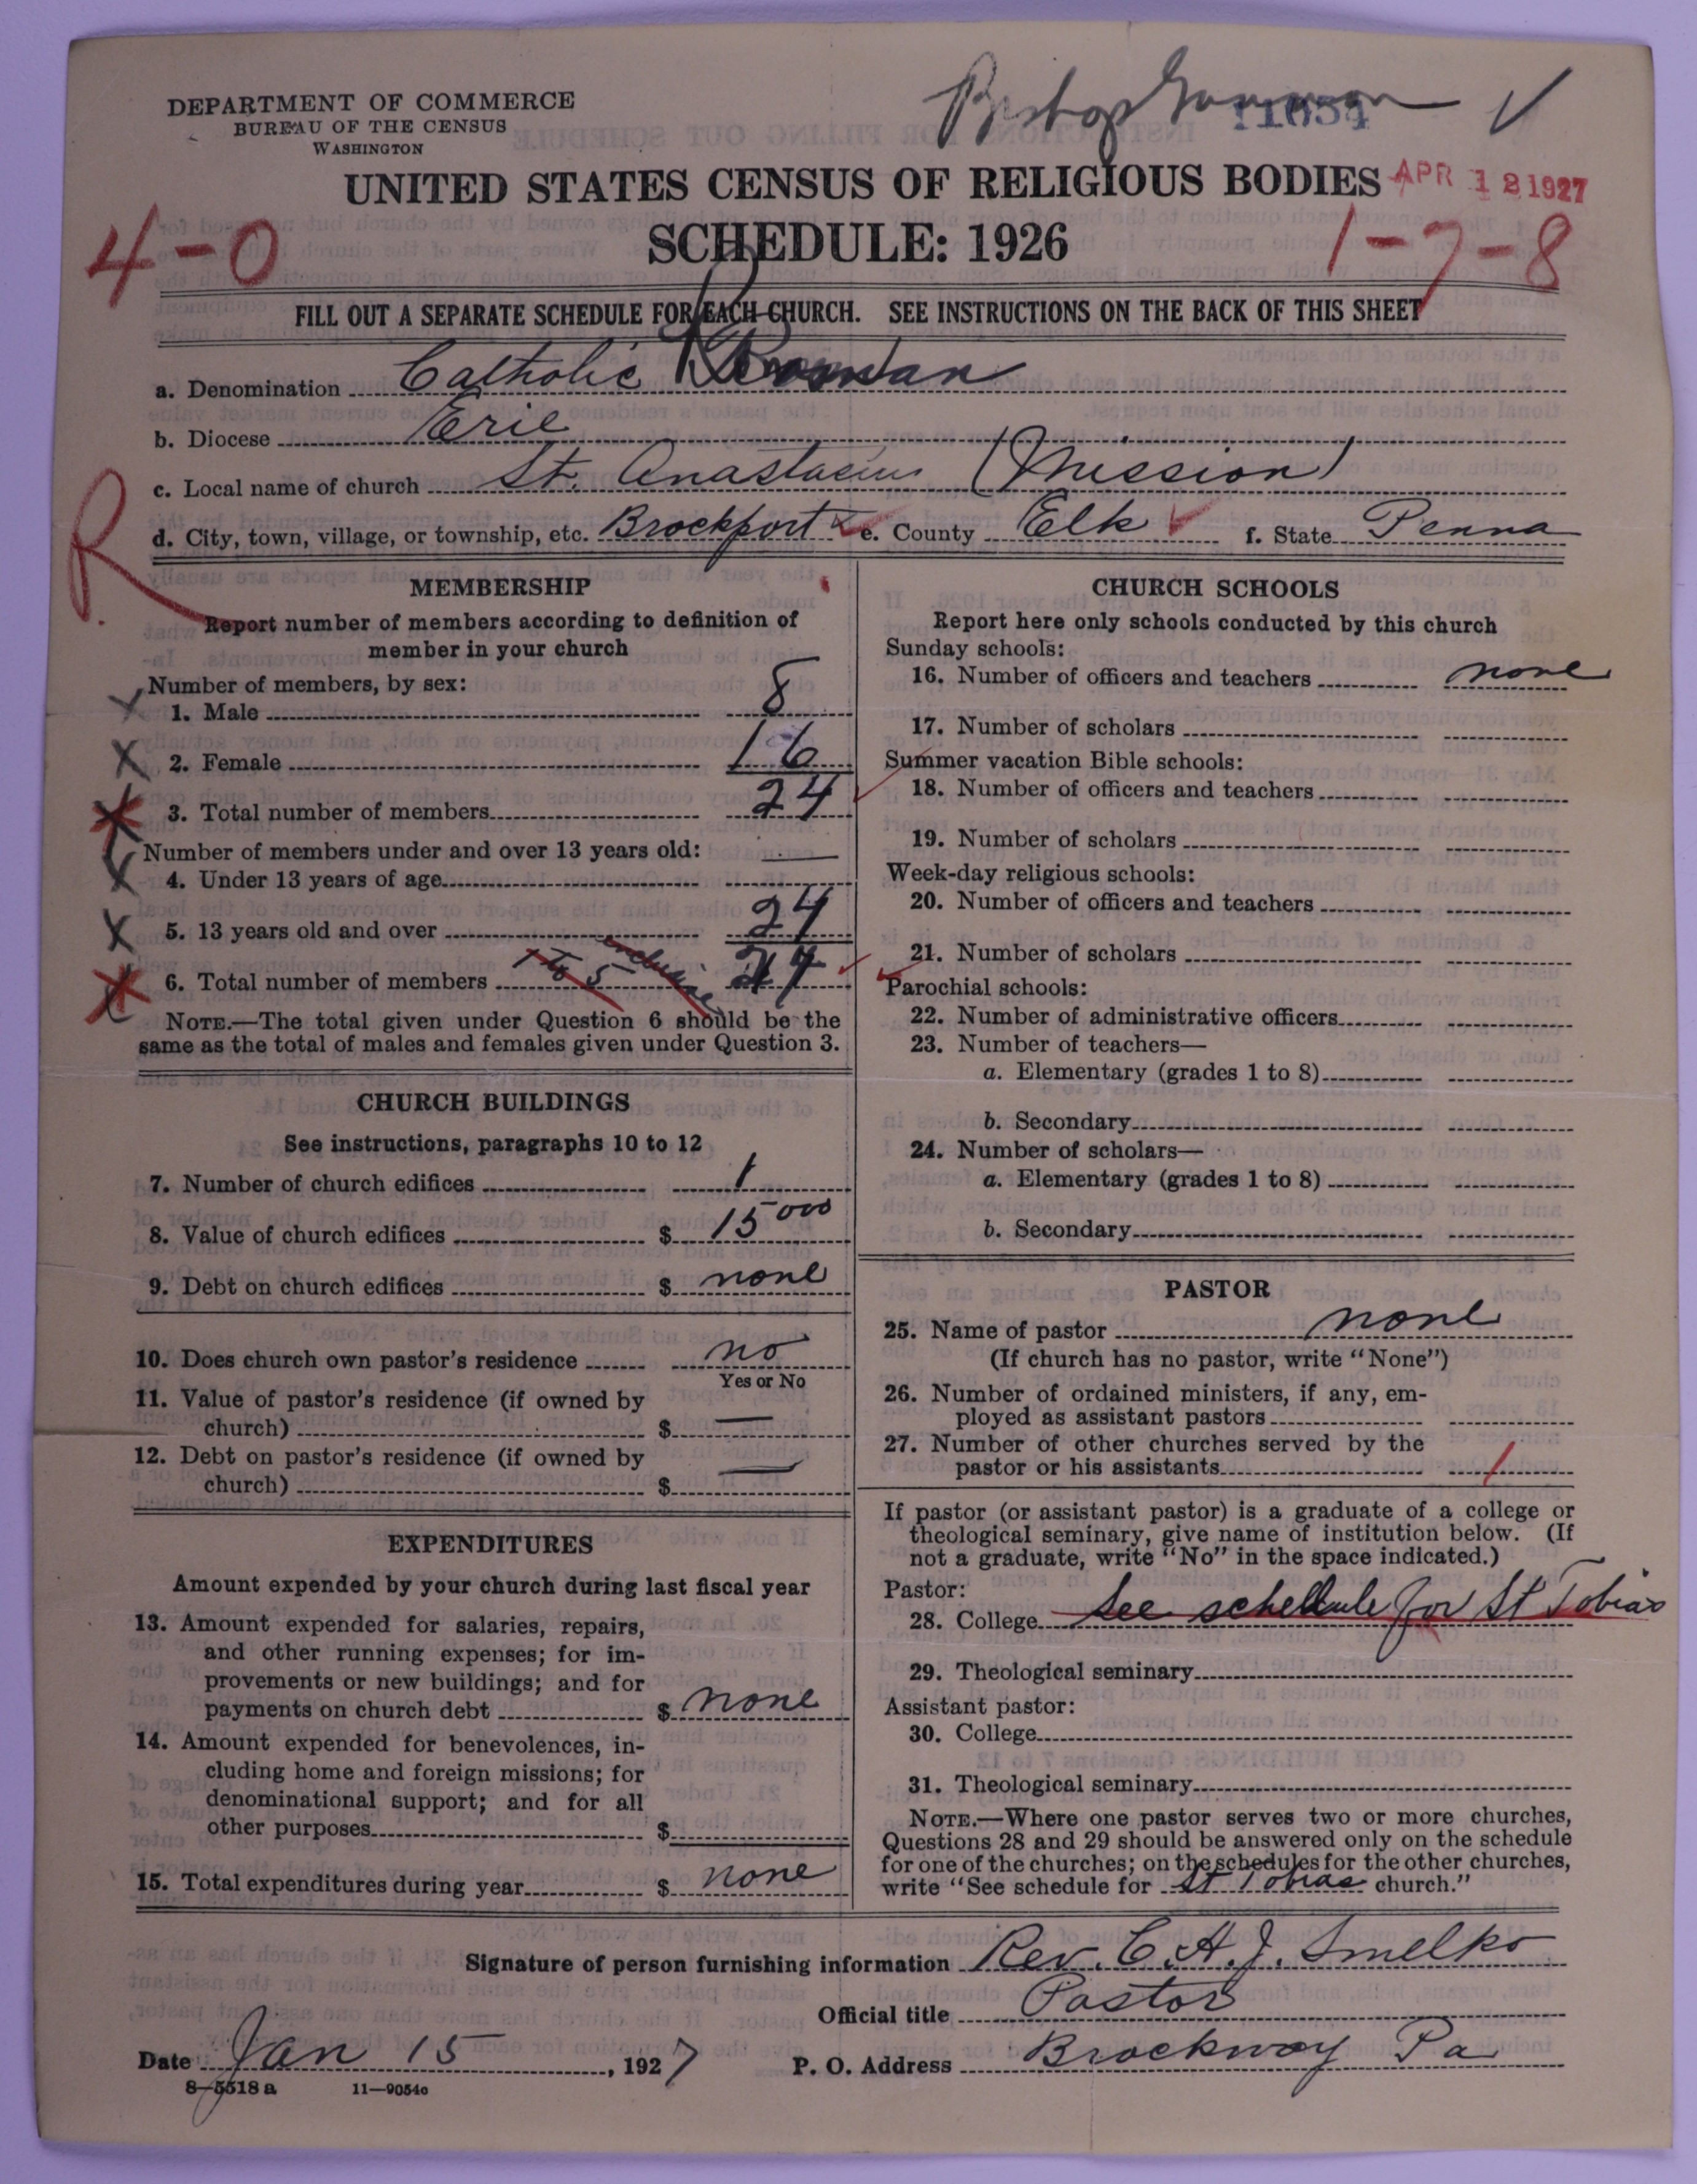 DEPARTMENT OF COMMERCE
BUREAU OF THE CENSUS
WASHINGTON
Bishop Gannon
11634
UNITED STATES CENSUS OF RELIGIOUS BODIES
APR 12 1927
SCHEDULE: 1926
4-0
1-7-8
FILL OUT A SEPARATE SCHEDULE FOR EACH CHURCH. SEE INSTRUCTIONS ON THE BACK OF THIS SHEET
a. Denomination Catholic Roman
b. Diocese Erie
c. Local name of church St. Anastacius (Mission)
d. City, town, village, or township, etc. Brockport e. County Elk f. State Penna
R
MEMBERSHIP
Report number of members according to definition of
member in your church
Number of members, by sex:
1. Male 8
2. Female 16
3. Total number of members 24
Number of members under and over 13 years old: —
4. Under 13 years of age
5. 13 years old and over 24
1 to 5 inclusive
6. Total number of members 24
NOTE.—The total given under Question 6 should be the
same as the total of males and females given under Question 3.
CHURCH BUILDINGS
See instructions, paragraphs 10 to 12
7. Number of church edifices 1
8. Value of church edifices $ 15000
9. Debt on church edifices $ none
10. Does church own pastor's residence no
Yes or No
11. Value of pastor's residence (if owned by
church) $ —
12. Debt on pastor's residence (if owned by
church) $ —
EXPENDITURES
Amount expended by your church during last fiscal year
13. Amount expended for salaries, repairs,
and other running expenses; for im-
provements or new buildings; and for
payments on church debt $ none
14. Amount expended for benevolences, in-
cluding home and foreign missions; for
denominational support; and for all
other purposes $
15. Total expenditures during year $ none
CHURCH SCHOOLS
Report here only schools conducted by this church
Sunday schools:
16. Number of officers and teachers none
17. Number of scholars
Summer vacation Bible schools:
18. Number of officers and teachers
19. Number of scholars
Week-day religious schools:
20. Number of officers and teachers
21. Number of scholars
Parochial schools:
22. Number of administrative officers
23. Number of teachers—
a. Elementary (grades 1 to 8)
b. Secondary
24. Number of scholars—
a. Elementary (grades 1 to 8)
b. Secondary
PASTOR
25. Name of pastor none
(If church has no pastor, write "None")
26. Number of ordained ministers, if any, em-
ployed as assistant pastors
27. Number of other churches served by the
pastor or his assistants 1
If pastor (or assistant pastor) is a graduate of a college or
theological seminary, give name of institution below. (If
not a graduate, write "No" in the space indicated.)
Pastor:
28. College See schedule for St Tobias
29. Theological seminary
Assistant pastor:
30. College
31. Theological seminary
NOTE.—Where one pastor serves two or more churches,
Questions 28 and 29 should be answered only on the schedule
for one of the churches; on the schedules for the other churches,
write "See schedule for St Tobias church."
Signature of person furnishing information Rev. C. A. J. Smelko
Official title Pastor
Date Jan 15, 1927 P. O. Address Brockway Pa
8—5518 a 11—9054c